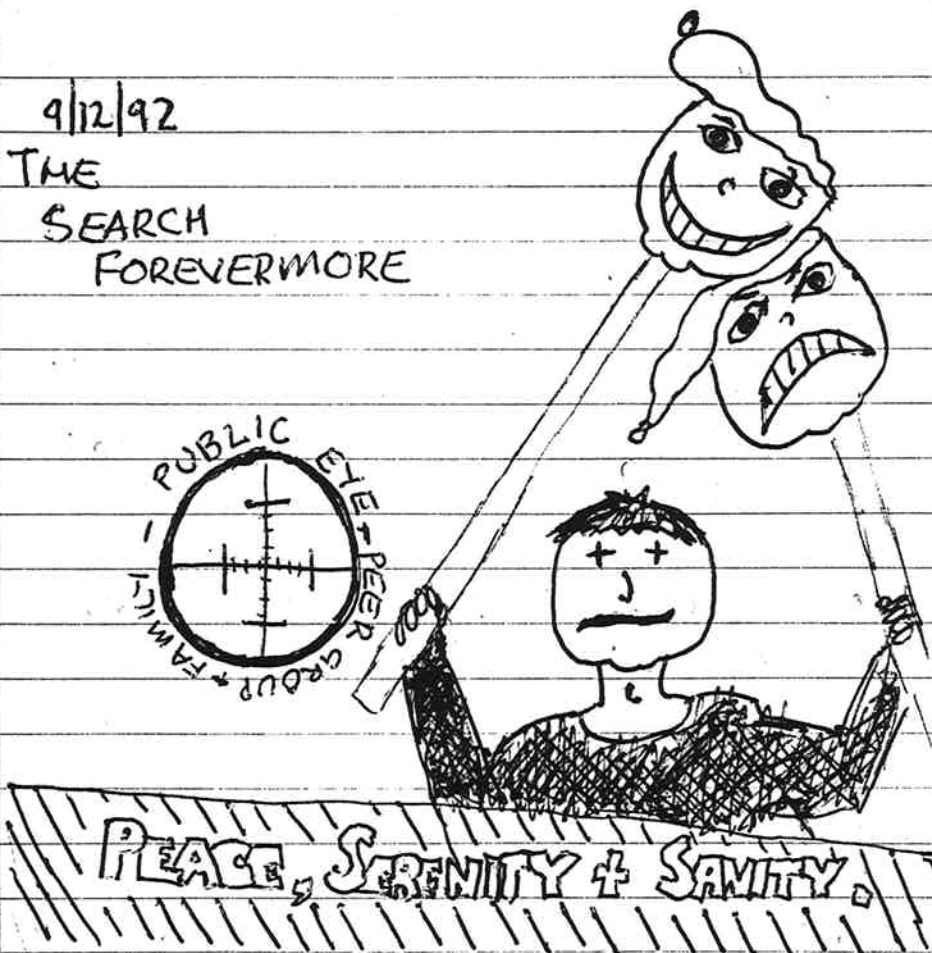 9/12/92
THE
SEARCH
FOREVERMORE
PUBLIC EYE + PEER GROUP + FAMILY -
PEACE, SERENITY + SANITY.